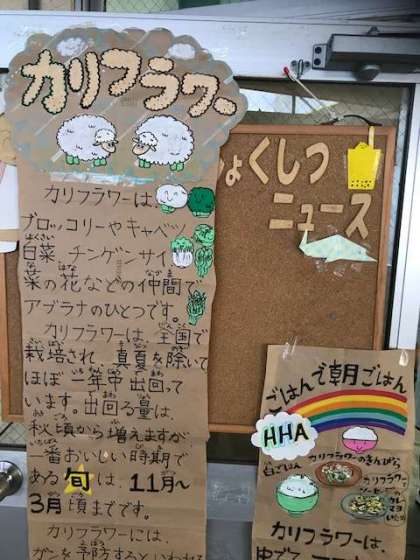 カリフラワー
カリフラワーは
ブロッコリーやキャベツ
白菜 チンゲンサイ
菜の花などの仲間で
アブラナのひとつです。
カリフラワーは、全国で
栽培され、真夏を除いて
ほぼ一年中出回って
います。出回る量は、
秋頃から増えますが
一番おいしい時期で
ある旬は、11月〜
3月頃までです。
カリフラワーには、
ガンを予防するといわれる
ょくしつ
ニュース
ごはんで朝ごはん
HHA
白ごはん
カリフラワーのきんぴら
カリフラワーは、